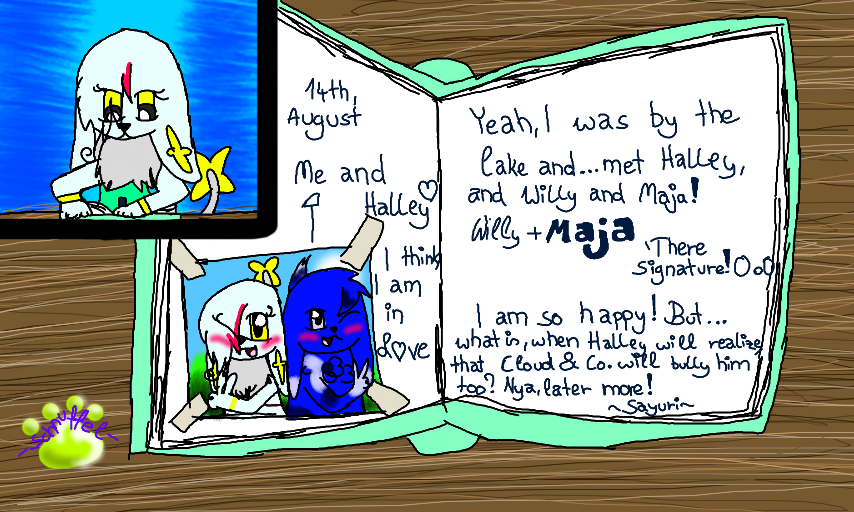 14th,
August
Me and
Halley♡
I think
I am
in
L♡ve
Yeah, I was by the
lake and...met Halley,
and Willy and Maja!
Willy + Maja
'There
signature! OoO
I am so happy! But...
what is, when Halley will realize,
that Cloud & Co. will bully him
too? Nya, later more!
~Sayuri~
~Schnuffel~